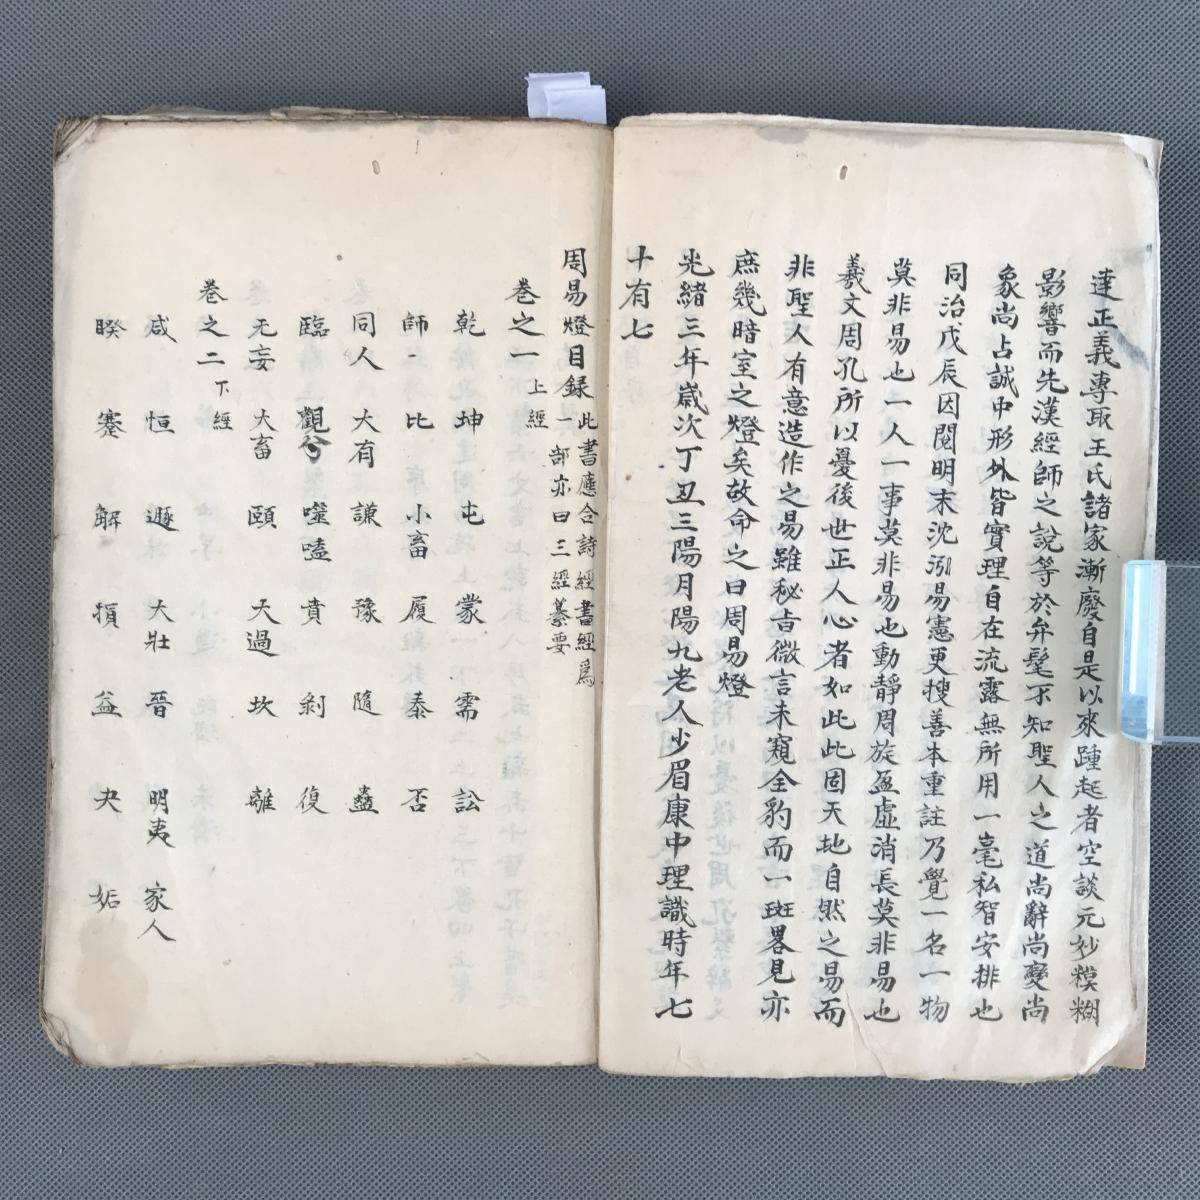 達正義專取王氏諸家漸廢自是以來踵起者空談元妙糢糊
影響而先漢經師之說等於弁髦不知聖人之道尚辭尚變尚
象尚占誠中形外皆實理自在流露無所用一毫私智安排也
同治戊辰因閱明末沈泓易憲更搜善本重註乃覺一名一物
莫非易也一人一事莫非易也動靜周旋盈虛消長莫非易也
羲文周孔所以憂後世正人心者如此此固天地自然之易而
非聖人有意造作之易雖秘旨微言未窺全豹而一斑畧見亦
庶幾暗室之燈矣故命之曰周易燈
光緒三年歲次丁丑三陽月陽九老人少眉康中理識時年七
十有七
周易燈目録 此書應合詩經書經爲
一部亦曰三經纂要
卷之一 上經
乾 坤 屯 蒙 需 訟
師 比 小畜 履 泰 否
同人 大有 謙 豫 隨 蠱
臨 觀 噬嗑 賁 剝 復
无妄 大畜 頤 大過 坎 離
卷之二 下經
咸 恒 遯 大壯 晉 明夷 家人
睽 蹇 解 損 益 夬 姤